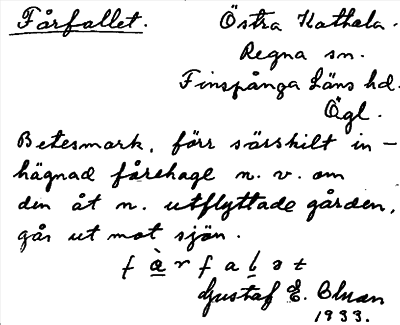 Fårfallet. Östra Kathala.
Regna sn.
Finspånga läns hd.
Ögl.
Betesmark, förr särskilt in-
hägnad fårehage n. v. om
den åt n. utflyttade gården,
går ut mot sjön.
f æ̀ r f a l ə t
Gustaf E. Olsson
1933.